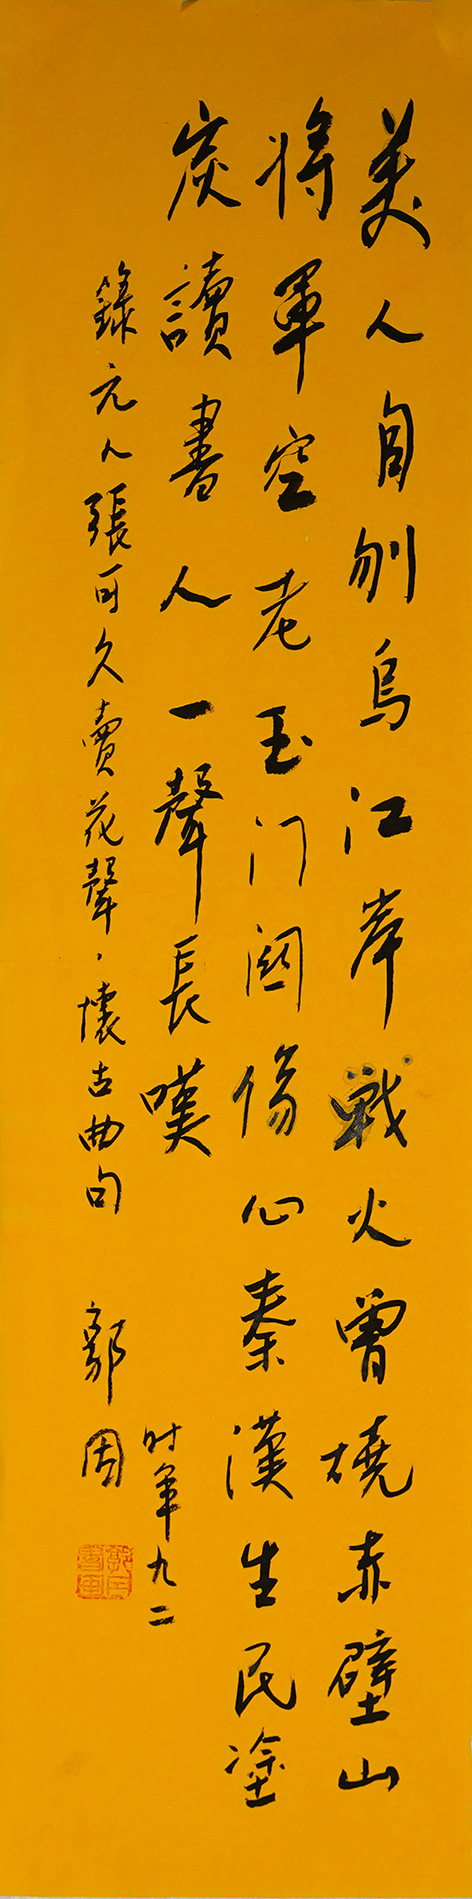 美人自刎烏江岸戰火曾燒赤壁山
將軍空老玉门關傷心秦漢生民塗
炭讀書人一聲長嘆
錄元人張可久賣花聲、懷古曲句
郭周
时年九二